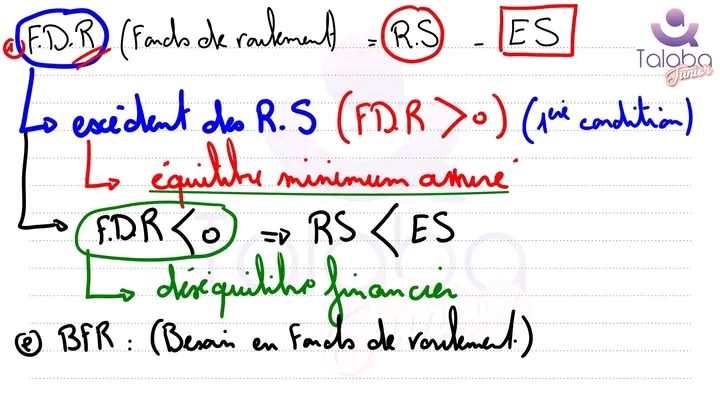 ① F.D.R (Fonds de roulement) = R.S - ES
Talaba
Junior
↳ excédent des R.S (F.D.R > 0) (1ère condition)
↳ équilibre minimum assuré
F.D.R < 0 ⇒ RS < ES
↳ déséquilibre financier
② BFR : (Besoin en Fonds de roulement)